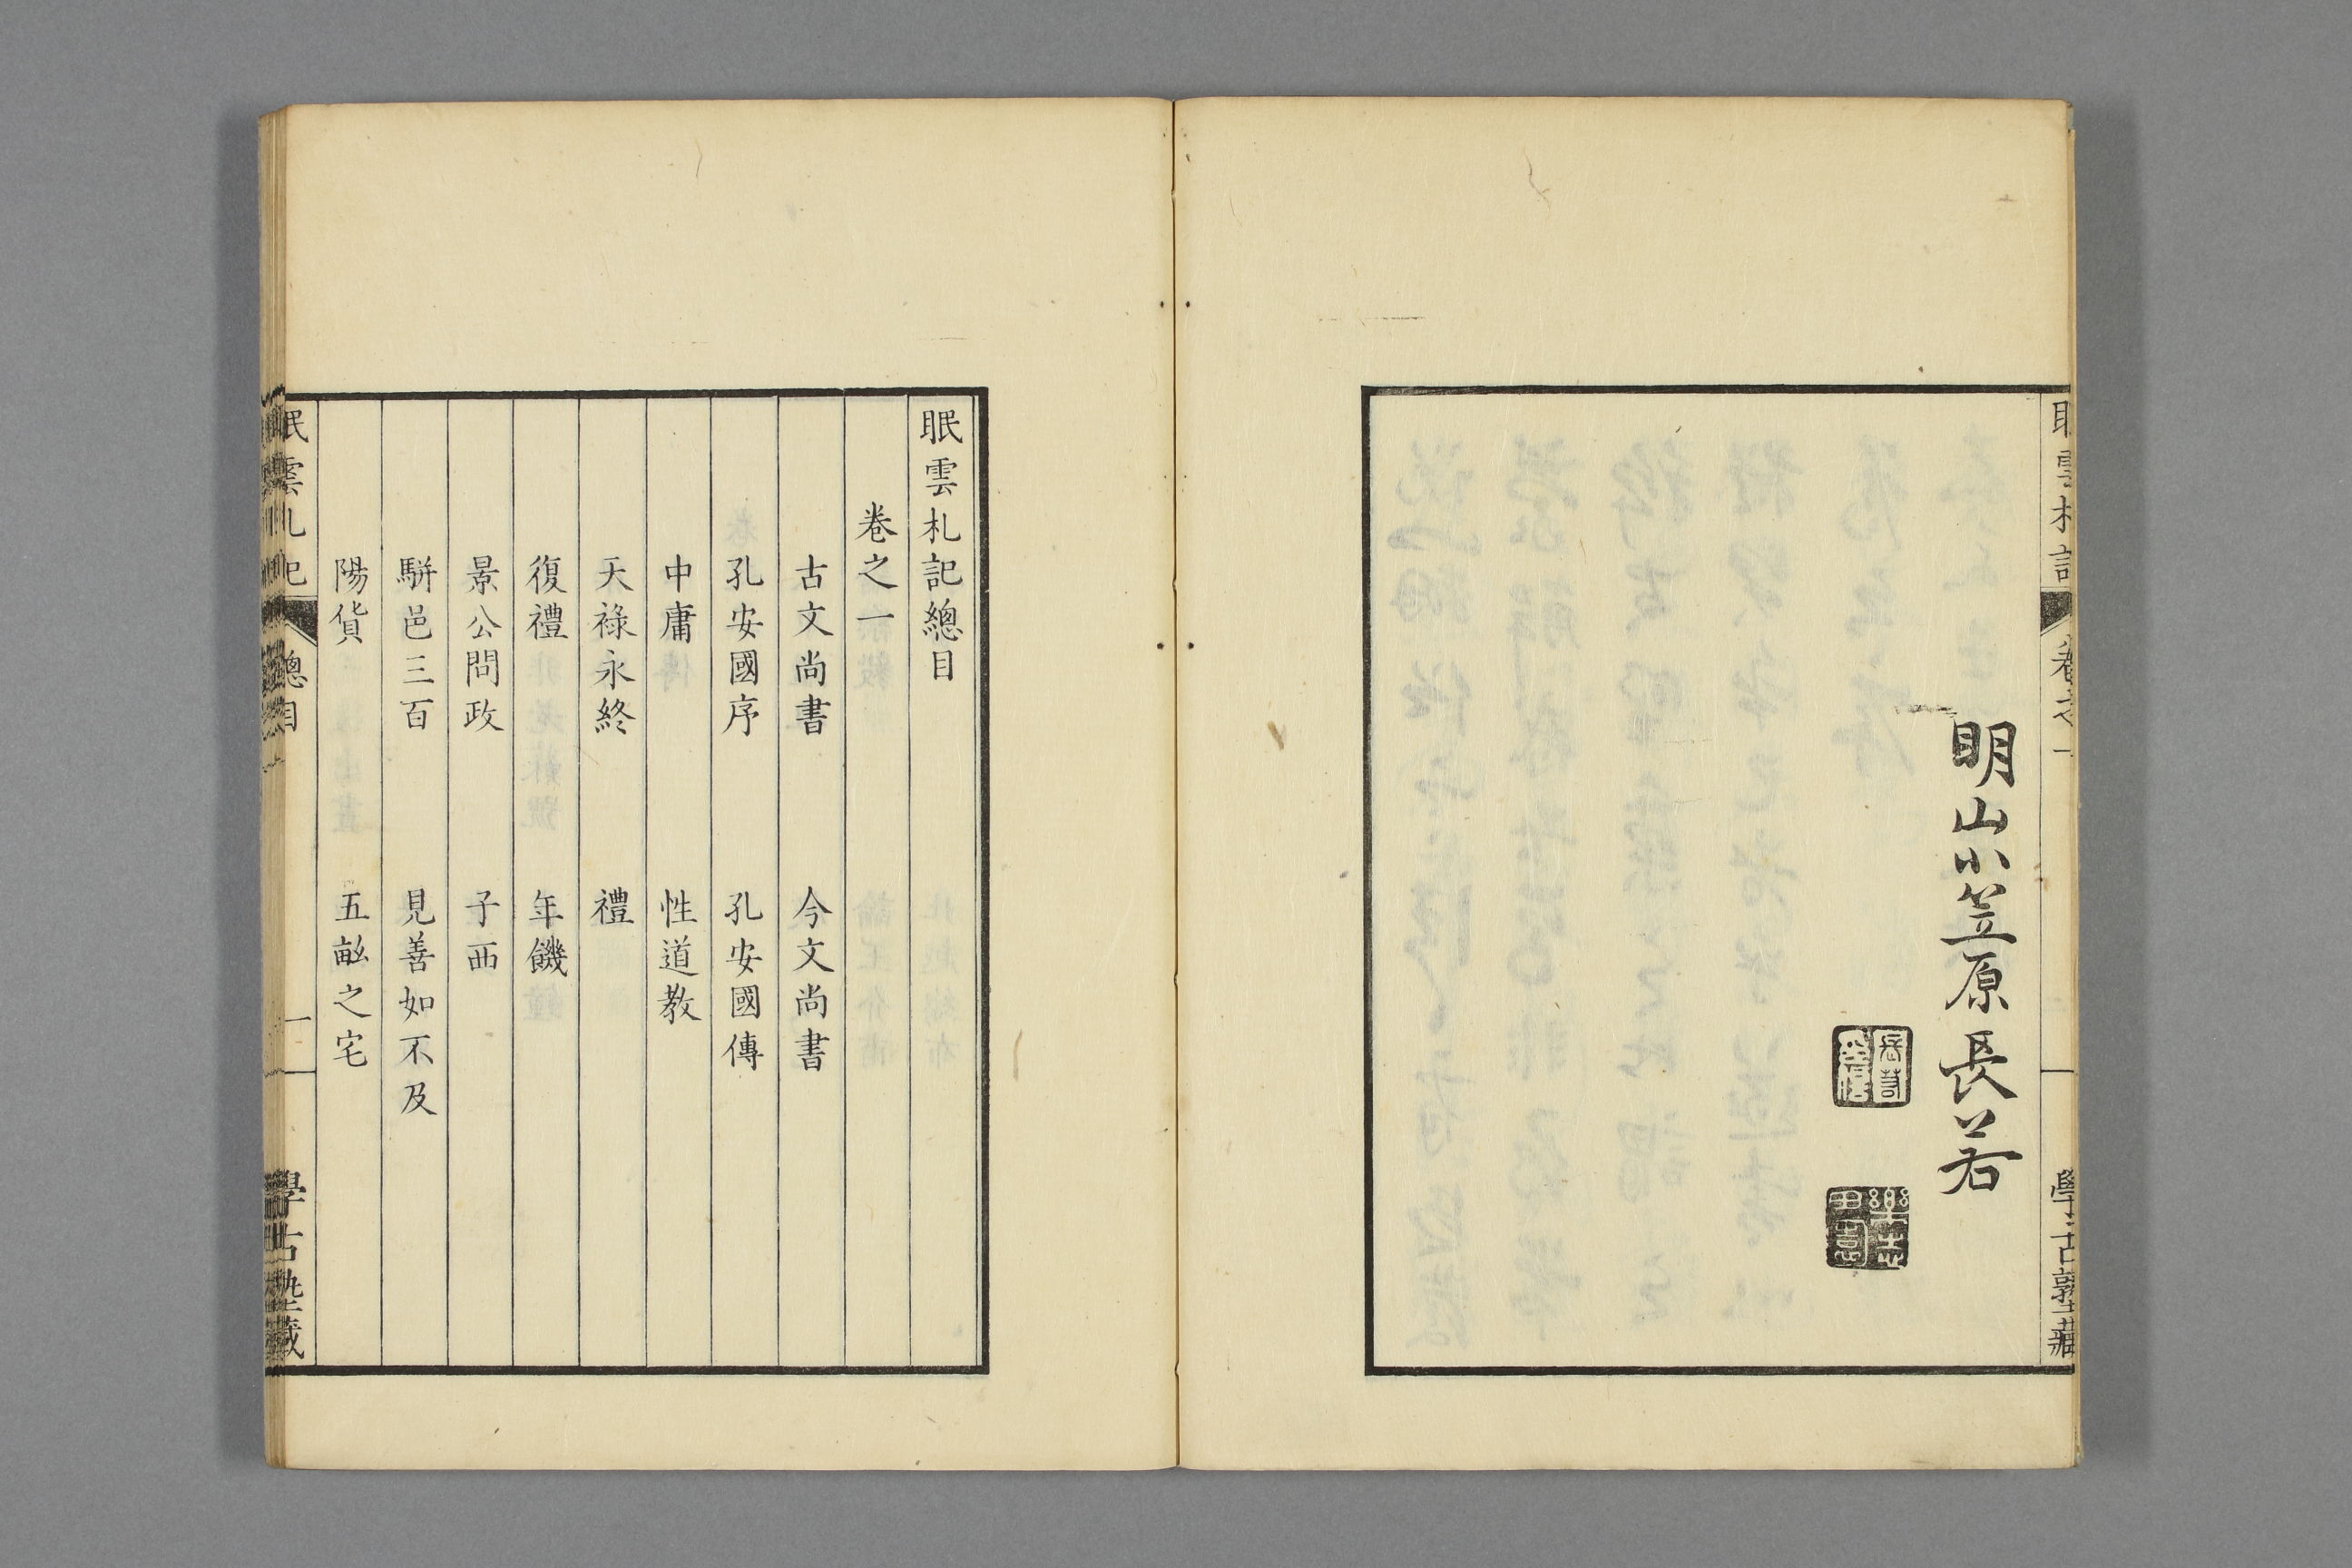 明山小笠原長若
眠雲札記總目
卷之一
古文尚書　今文尚書
孔安國序　孔安國傳
中庸　性道教
天祿永終　禮
復禮　年饑
景公問政　子西
駢邑三百　見善如不及
陽貨　五畝之宅
眠雲札記　總目　一　學古塾藏